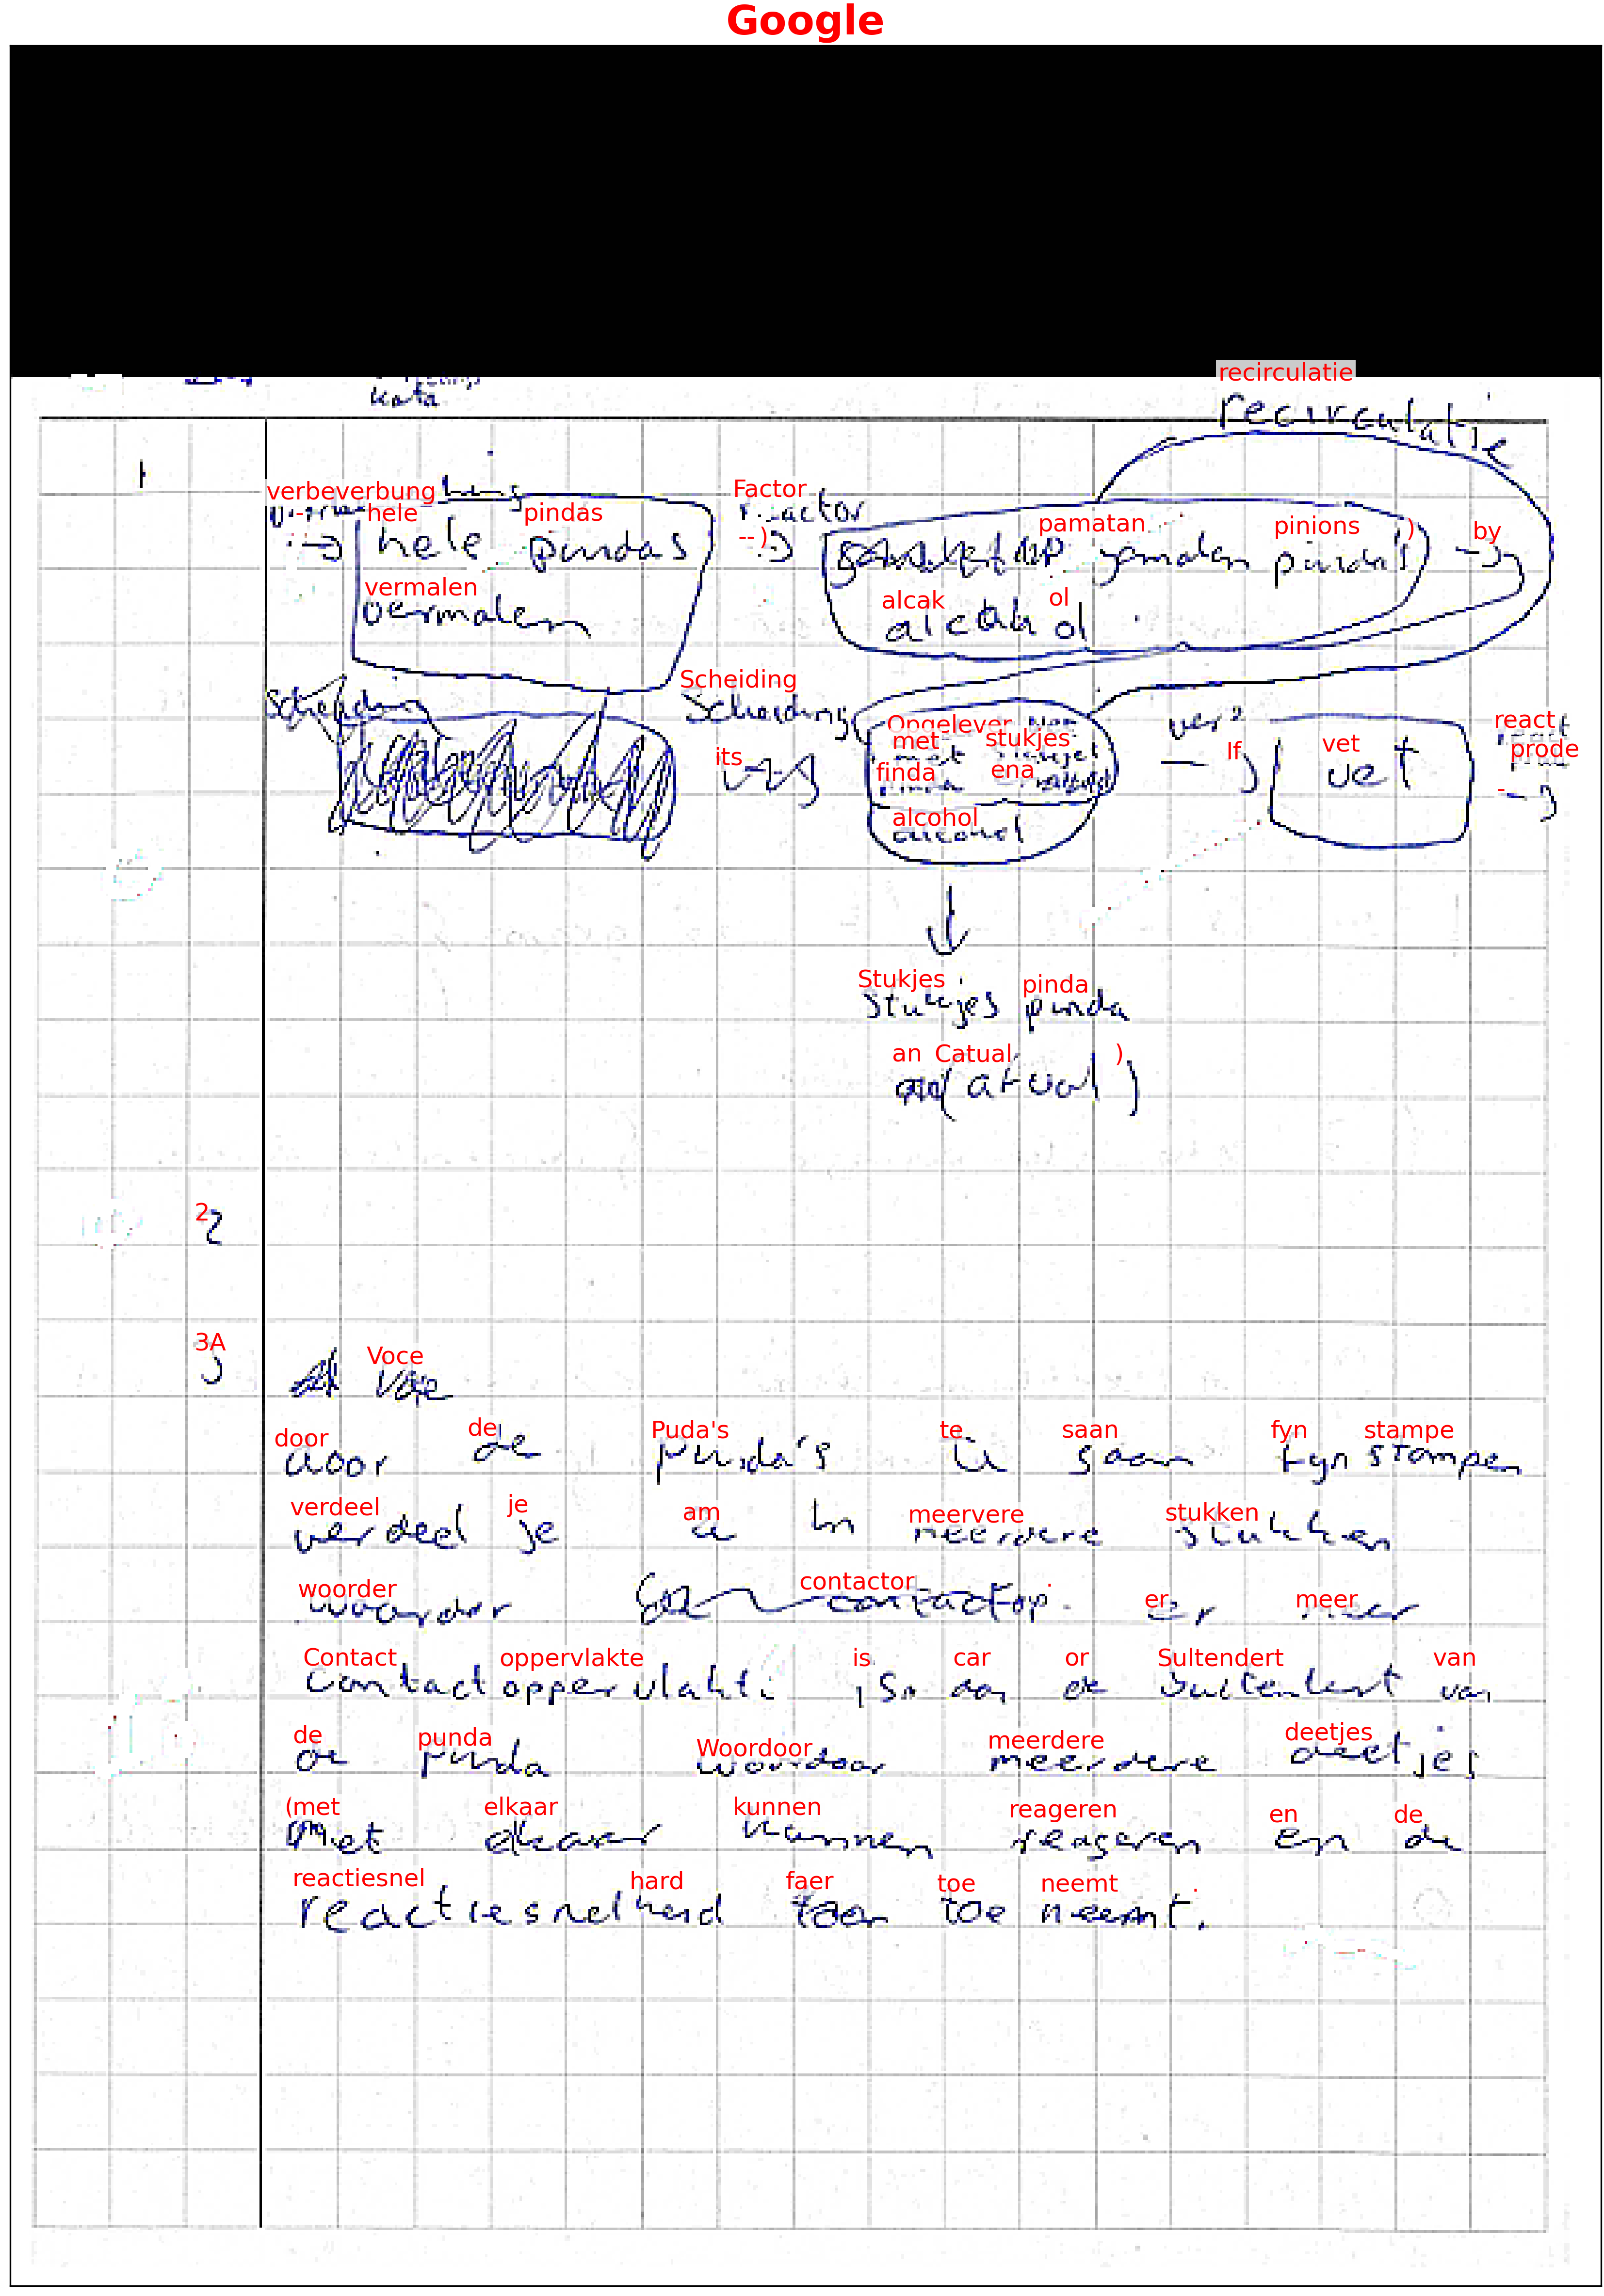 Google
kata
recirculatie
recirculatie
1
verbeverbung
hele pindas
Factor
reactor
pamatan pinions ) by
hele pindas
--)
gemalen pinda's
vermalen
vermalen
alcak ol
alcohol
Scheiding
Scheiding
Scheiding
Opgelever
met stukjes
finda ena
alcohol
alcohol
its
lf
vet
vet
react
prode
Stukjes pinda
Stukjes pinda
an Catual )
(afval)
2
2
3A
3
Voce
door de Puda's te saan fyn stampe
door de pinda's te gaan fyn stampen
verdeel je am meervere stukken
verdeel je in meerdere stukken
woorder contactor . er meer
waardor contactop er meer
Contact oppervlakte is car or Sultendert van
contactoppervlakte is aan de buitenkant van
de punda Woordoor meerdere deetjes
de pinda waardoor meerdere deeltjes
(met elkaar kunnen reageren en de
met elkaar kunnen reageren en de
reactiesnel hard faer toe neemt .
reactiesnelheid toe neemt.